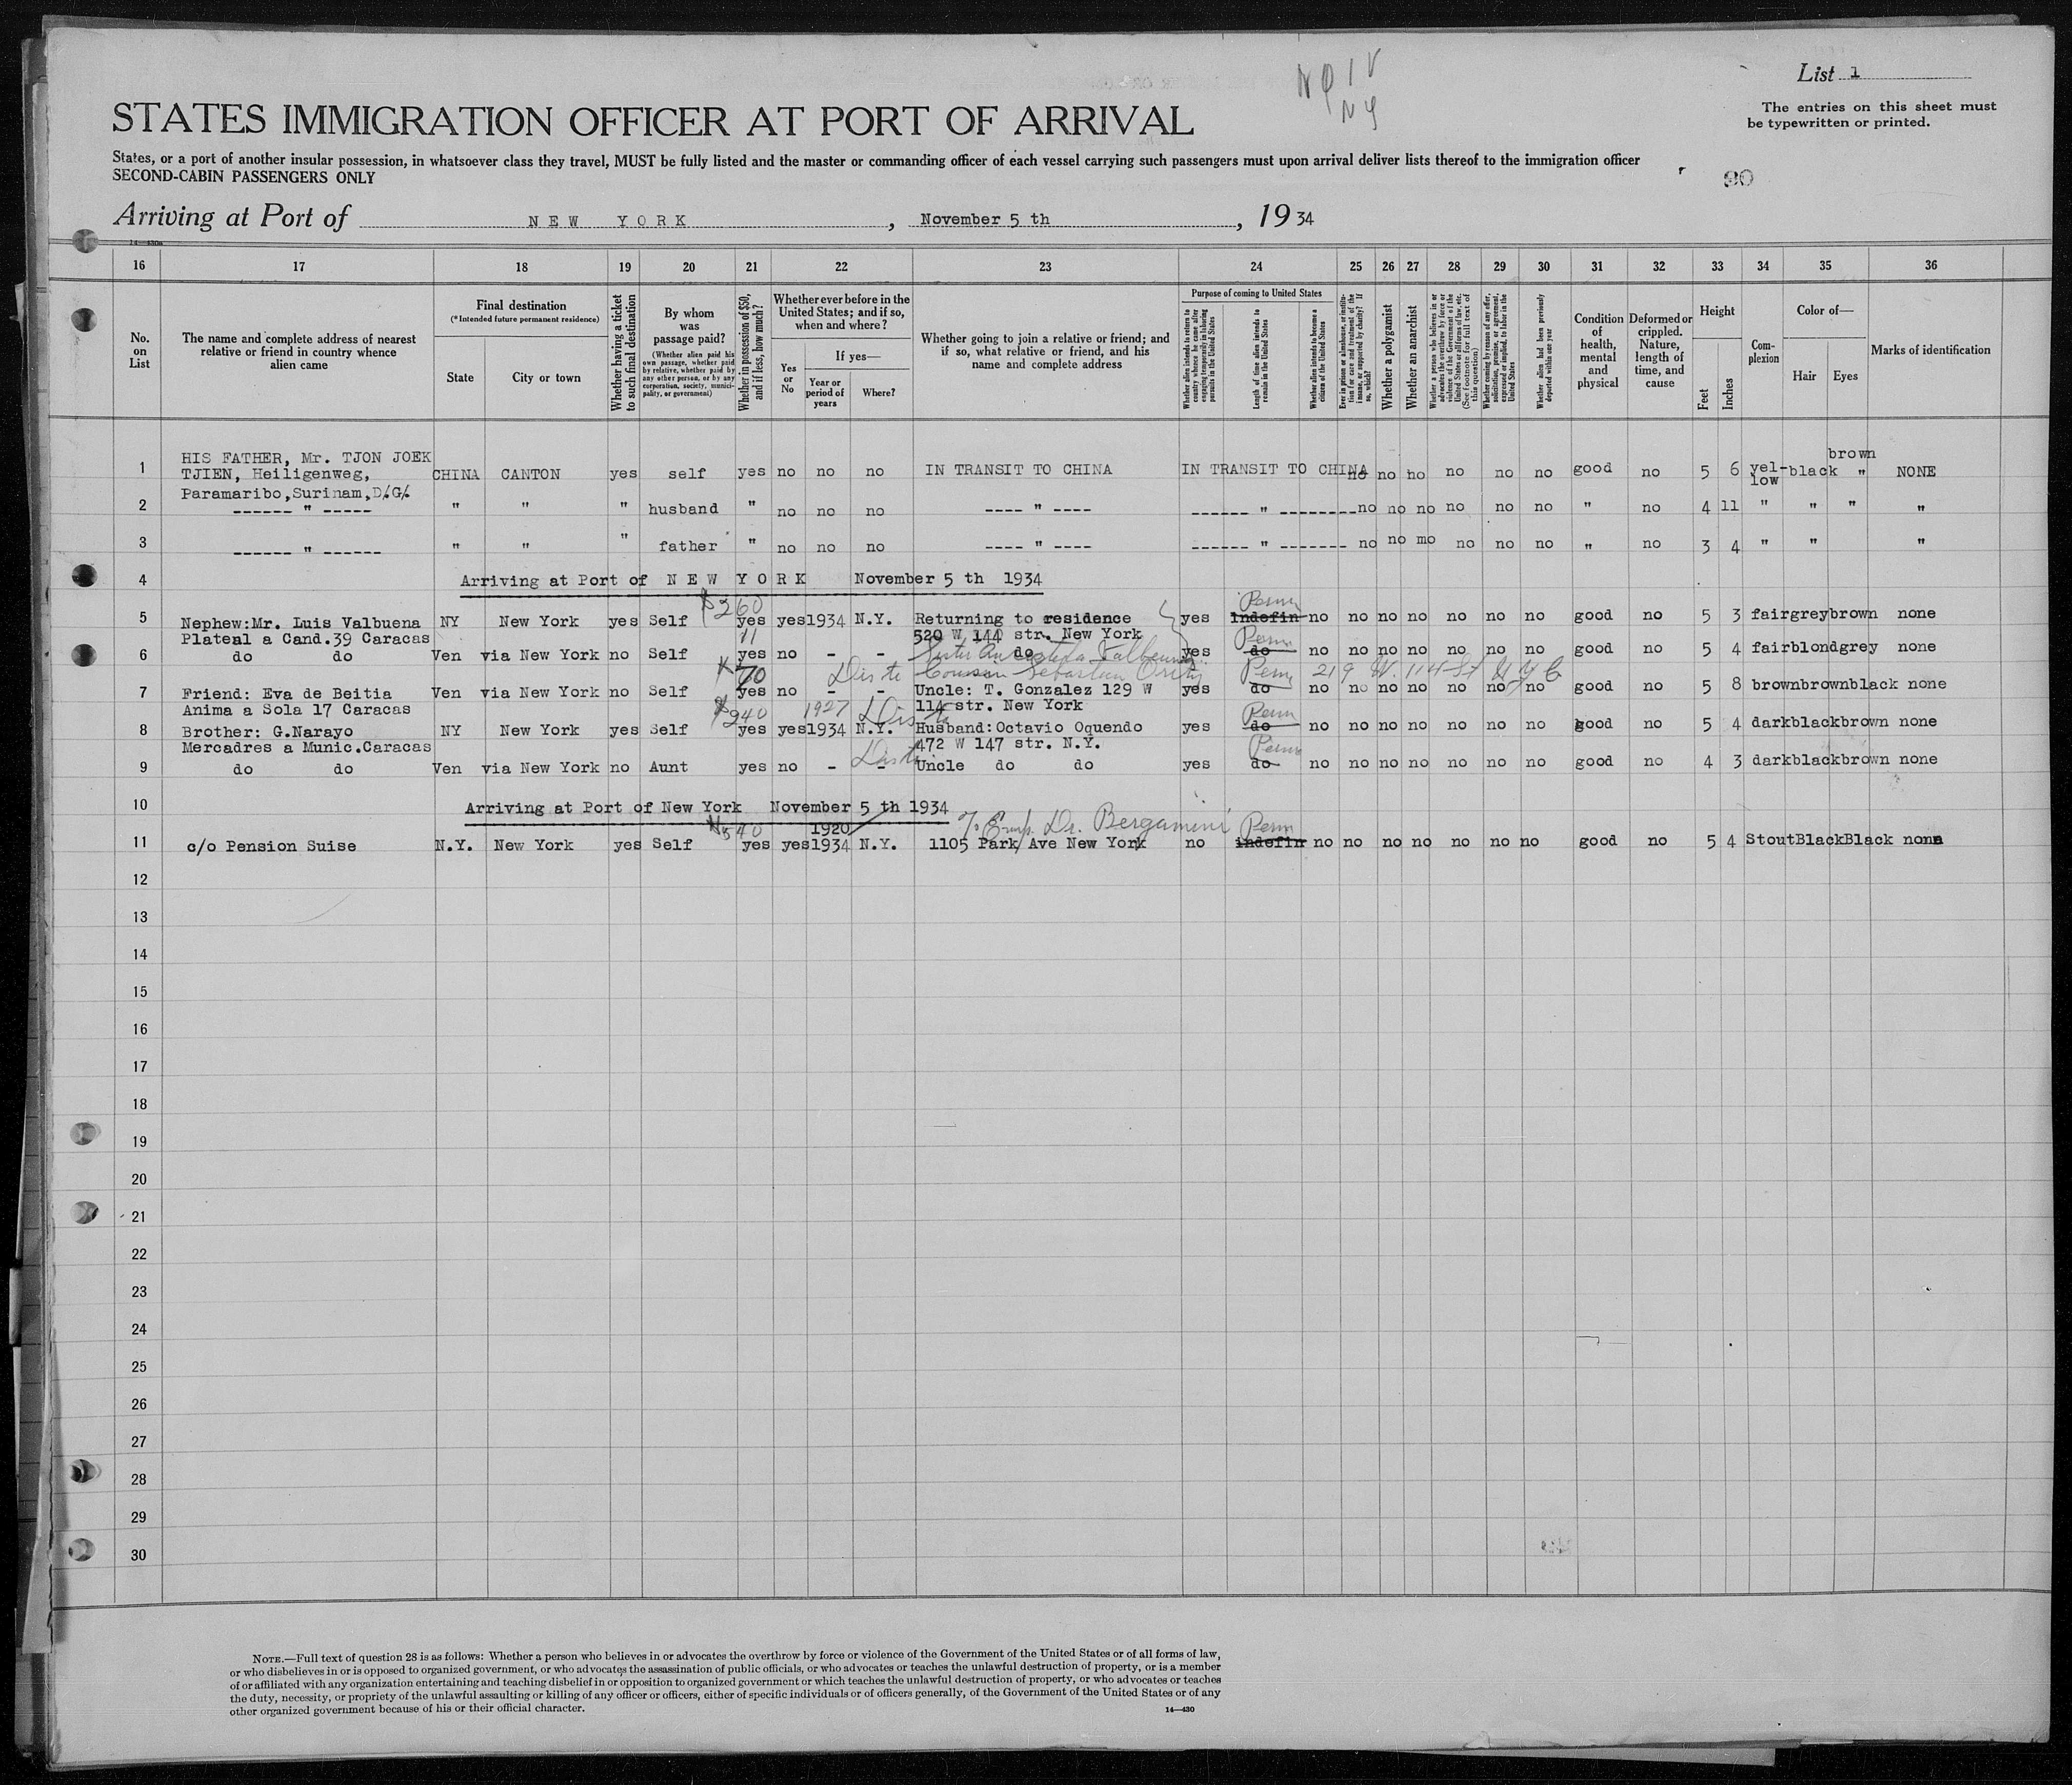 List 1
The entries on this sheet must
be typewritten or printed.
STATES IMMIGRATION OFFICER AT PORT OF ARRIVAL
States, or a port of another insular possession, in whatsoever class they travel, MUST be fully listed and the master or commanding officer of each vessel carrying such passengers must upon arrival deliver lists thereof to the immigration officer
SECOND-CABIN PASSENGERS ONLY
90
Arriving at Port of NEW YORK, November 5 th, 1934
16 17 18 19 20 21 22 23 24 25 26 27 28 29 30 31 32 33 34 35 36
No. on List
The name and complete address of nearest relative or friend in country whence alien came
Final destination
(*Intended future permanent residence)
State
City or town
Whether having a ticket to such final destination
By whom was passage paid?
(Whether alien paid his own passage, whether paid by relative, whether paid by any other person, or by any corporation, society, municipality, or government)
Whether in possession of $50, and if less, how much?
Whether ever before in the United States; and if so, when and where?
Yes or No
If yes—
Year or period of years
Where?
Whether going to join a relative or friend; and if so, what relative or friend, and his name and complete address
Purpose of coming to United States
Whether alien intends to return to country whence he came after engaging temporarily in laboring pursuits in the United States
Length of time alien intends to remain in the United States
Whether alien intends to become a citizen of the United States
Ever in prison or almshouse, or institution for care and treatment of the insane, or supported by charity? If so, which?
Whether a polygamist
Whether an anarchist
Whether a person who believes in or advocates the overthrow by force or violence of the Government of the United States or all forms of law, etc. (See footnote for full text of this question)
Whether coming by reason of any offer, solicitation, promise, or agreement, expressed or implied, to labor in the United States
Whether alien had been previously deported within one year
Condition of health, mental and physical
Deformed or crippled. Nature, length of time, and cause
Height
Feet
Inches
Complexion
Color of—
Hair
Eyes
Marks of identification
HIS FATHER, Mr. TJON JOEK brown
1 TJIEN, Heiligenweg, CHINA CANTON yes self yes no no no IN TRANSIT TO CHINA IN TRANSIT TO CHINA no no no no no no good no 5 6 yel-low black " NONE
Paramaribo, Surinam, D/.G/.
2 ------ " ----- " " " husband " no no no ---- " ---- ------ " -------- no no no no no no " no 4 11 " " " "
3 ------ " ------ " " " father " no no no ---- " ---- ------ " ------- no no mo no no no " no 3 4 " " " "
4 Arriving at Port of NEW YORK November 5 th 1934
$260 Perm
5 Nephew:Mr. Luis Valbuena NY New York yes Self yes yes 1934 N.Y. Returning to residence yes indefin no no no no no no no good no 5 3 fair grey brown none
Plateal a Cand.39 Caracas 11 520 W 144 str. New York Perm
6 do do Ven via New York no Self yes no - - do yes do no no no no no no no good no 5 4 fair blond grey none
70 Cousin Sebastian Perm 219 W. 114 St N Y C
7 Friend: Eva de Beitia Ven via New York no Self yes no - - Uncle: T. Gonzalez 129 W yes do no no no no no no no good no 5 8 brown brown black none
Anima a Sola 17 Caracas $240 1927 114 str. New York Perm
8 Brother: G.Narayo NY New York yes Self yes yes 1934 N.Y. Husband:Octavio Oquendo yes do no no no no no no no good no 5 4 dark black brown none
Mercadres a Munic.Caracas 472 W 147 str. N.Y. Perm
9 do do Ven via New York no Aunt yes no - - Uncle do do yes do no no no no no no no good no 4 3 dark black brown none
10 Arriving at Port of New York November 5 th 1934
$540 1920 % Emp. Dr. Bergamini Perm
11 c/o Pension Suise N.Y. New York yes Self yes yes 1934 N.Y. 1105 Park Ave New York no indefin no no no no no no no good no 5 4 Stout Black Black none
12
13
14
15
16
17
18
19
20
21
22
23
24
25
26
27
28
29
30
NOTE.—Full text of question 28 is as follows: Whether a person who believes in or advocates the overthrow by force or violence of the Government of the United States or of all forms of law,
or who disbelieves in or is opposed to organized government, or who advocates the assassination of public officials, or who advocates or teaches the unlawful destruction of property, or is a member
of or affiliated with any organization entertaining and teaching disbelief in or opposition to organized government or which teaches the unlawful destruction of property, or who advocates or teaches
the duty, necessity, or propriety of the unlawful assaulting or killing of any officer or officers, either of specific individuals or of officers generally, of the Government of the United States or of any
other organized government because of his or their official character.
14—430